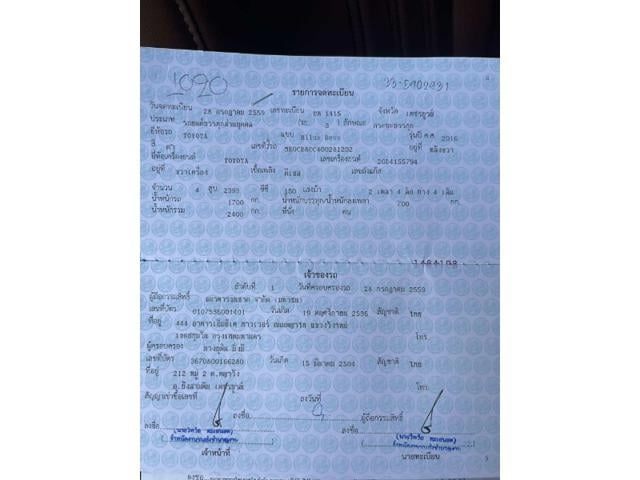 1020 33-5902921
รายการจดทะเบียน
วันจดทะเบียน 28 กรกฎาคม 2559 เลขทะเบียน บห 1415 จังหวัด เพชรบูรณ์
ประเภท รถยนต์บรรทุกส่วนบุคคล (รย. 3 ) ลักษณะ กระบะบรรทุก
ยี่ห้อรถ TOYOTA แบบ Hilux Revo รุ่นปี ค.ศ 2016
สี เทา เลขตัวรถ อยู่ที่
ยี่ห้อเครื่องยนต์ TOYOTA เลขเครื่องยนต์ 2GD4155794
อยู่ที่ ขวาเครื่อง เชื้อเพลิง ดีเซล เลขถังแก๊ส
จำนวน 4 สูบ 2393 ซีซี 150 แรงม้า 2 เพลา 4 ล้อ ยาง 4 เส้น
น้ำหนักรถ 1700 กก. น้ำหนักบรรทุก/น้ำหนักลงเพลา 700 กก.
น้ำหนักรวม 2400 กก. ที่นั่ง คน
เจ้าของรถ
ลำดับที่ 1 วันที่ครอบครองรถ 28 กรกฎาคม 2559
ผู้ถือกรรมสิทธิ์ ธนาคารธนชาต จำกัด (มหาชน)
เลขที่บัตร 0107536001401 วันเกิด 19 พฤศจิกายน 2536 สัญชาติ ไทย
ที่อยู่ 444 อาคารเอ็มบีเค ทาวเวอร์ ถนนพญาไท แขวงวังใหม่
เขตปทุมวัน กรุงเทพมหานคร โทร.
ผู้ครอบครอง
เลขที่บัตร 3670800166280 วันเกิด 15 มีนาคม 2504 สัญชาติ ไทย
ที่อยู่ 212 หมู่ 2 ต. โทร.
อ.บึงสามพัน เพชรบูรณ์
สัญญาเช่าซื้อเลขที่ ลงวันที่
ลงชื่อ ผู้ถือกรรมสิทธิ์
ลงชื่อ ลงชื่อ
เจ้าหน้าที่ นายทะเบียน